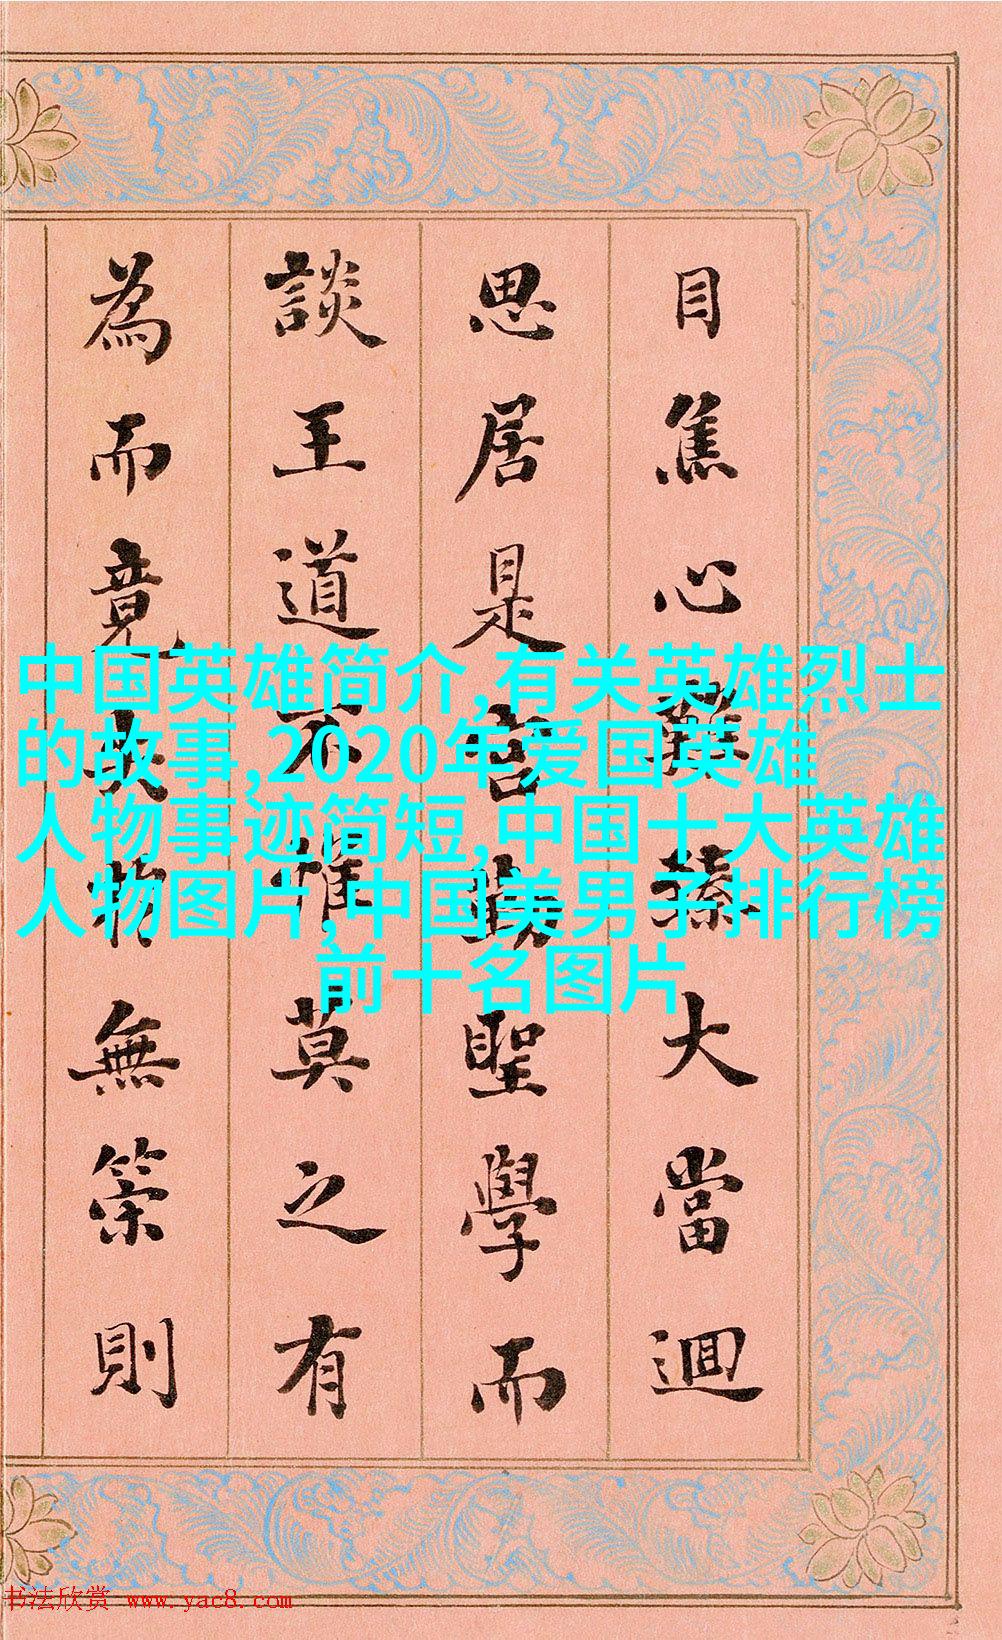 目焦心難大當迴
思居是聖學而
談王道不惟莫之有
為而竟物無策則
中国英雄简介,有关英雄烈士
的故事,2020年爱国英雄
人物事迹简短,中国十大英雄
人物图片,中国美男子排行榜
前十名图片
书法欣赏 www.yac8.com